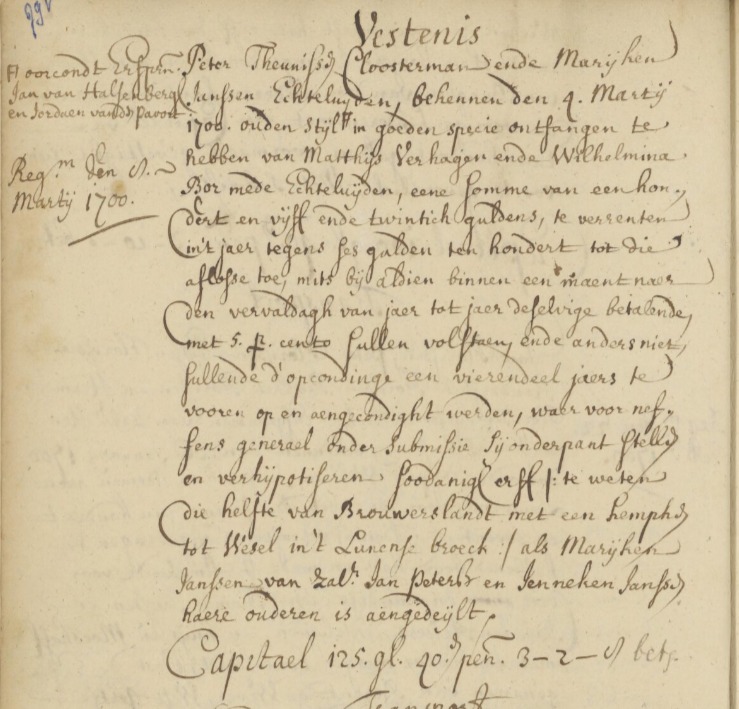 Vestenis
oorcondt Erfgen.
Jan van Halsenbergh
en Jordaen vande Pavort
Reg.m den 8.
Martij 1700.
Peter Theunissen Cloosterman ende Marijken
Janssen Echteluyden, bekennen den 4. Martij
1700. ouden Stijl in goeden specie ontfangen te
hebben van Matthijs Verhagen ende Wilhelmina
Bor mede Echteluijden, eene somme van een hon-
dert en vijff ende twintich guldens, te verrenten
in't jaer tegens ses gulden ten hondert tot die
aflosse toe, mits bij aldien binnen een maent naer
den vervaldagh van jaer tot jaer deselvige betalende,
met 5. p. cento sullen volstaen, ende anders niet,
sullende d'opcondinge een vierendeel jaers te
vooren op en aengecondight werden, waer voor nef-
fens generael onder submissie sij onderpant stellen
en verhijpotiseren soodanigh erff /: te weten
die helfte van Brouwerslandt met een kempken
tot Wesel in't Lunense broeck :/ als Marijken
Janssen van zalr. Jan Peters en Jenneken Janssen
haere ouderen is aengedeijlt.
Capitael 125. gl. 40. pen. 3-2-8 bet.